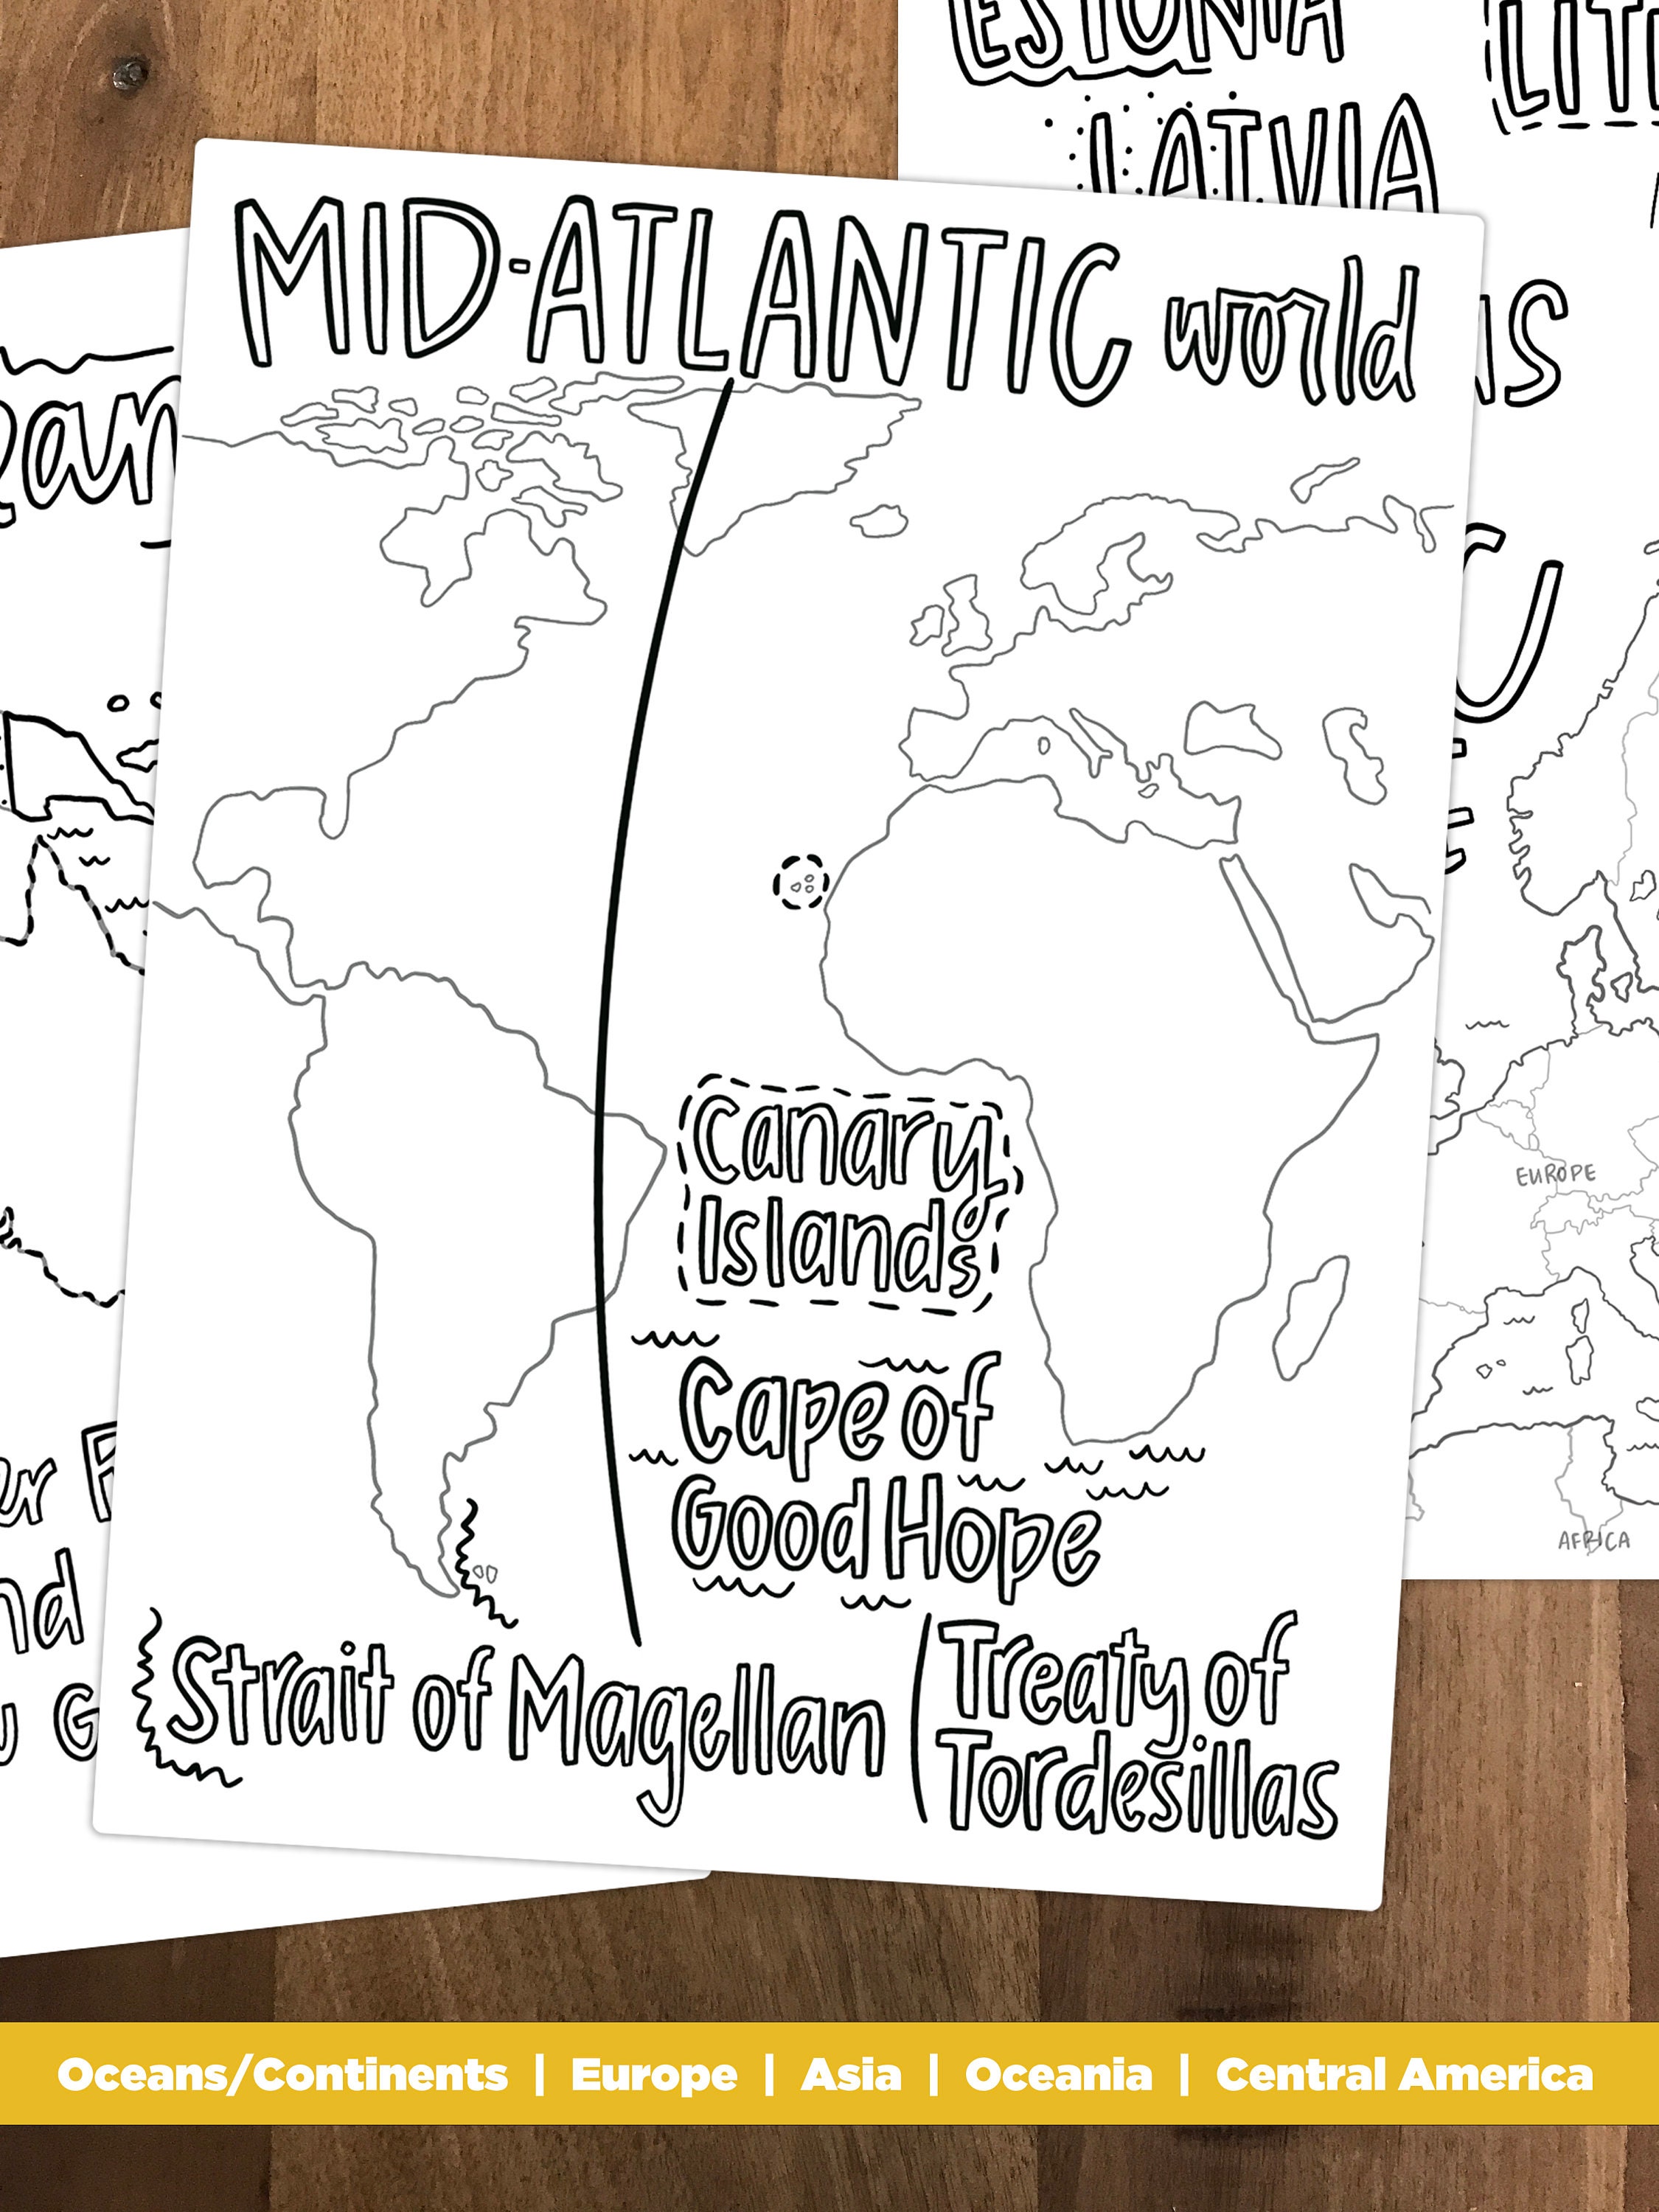 ESTONIA
LATVIA
MID-ATLANTIC world
Canary
Islands
Cape of
Good Hope
Strait of Magellan
Treaty of
Tordesillas
EUROPE
AFRICA
Oceans/Continents | Europe | Asia | Oceania | Central America